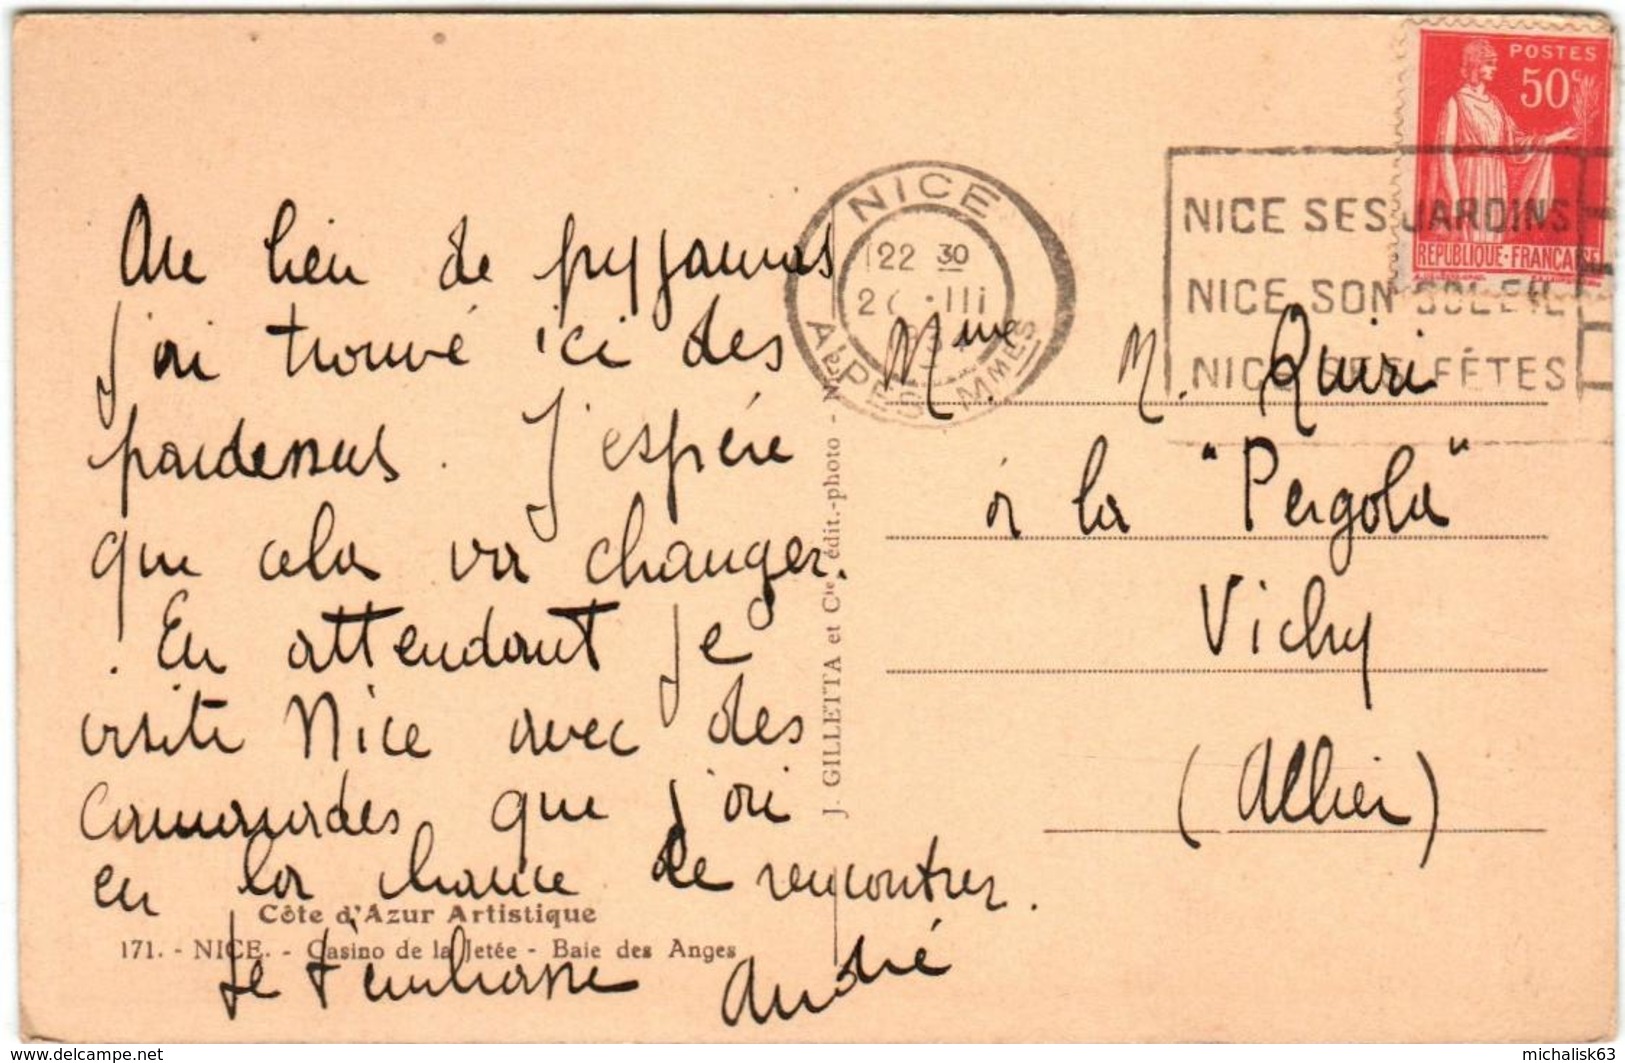 Au lieu de pyjamas
j'ai trouvé ici des
pardessus. J'espère
que cela va changer.
. En attendant je
visite Nice avec des
camarades que j'ai
eu la chance de rencontrer.
Je t'embrasse André
Côte d'Azur Artistique
171. - NICE. - Casino de la Jetée - Baie des Anges
J. GILLETTA et Cie, édit.-photo - Nice
NICE
22 30
III
ALPES MMES
NICE SES JARDINS
NICE SON SOLEIL
NICE SES FÊTES
POSTES
50c
REPUBLIQUE-FRANÇAISE
Mme M. Quiri
à la "Pergola"
Vichy
(Allier)
www.delcampe.net
michalisk63